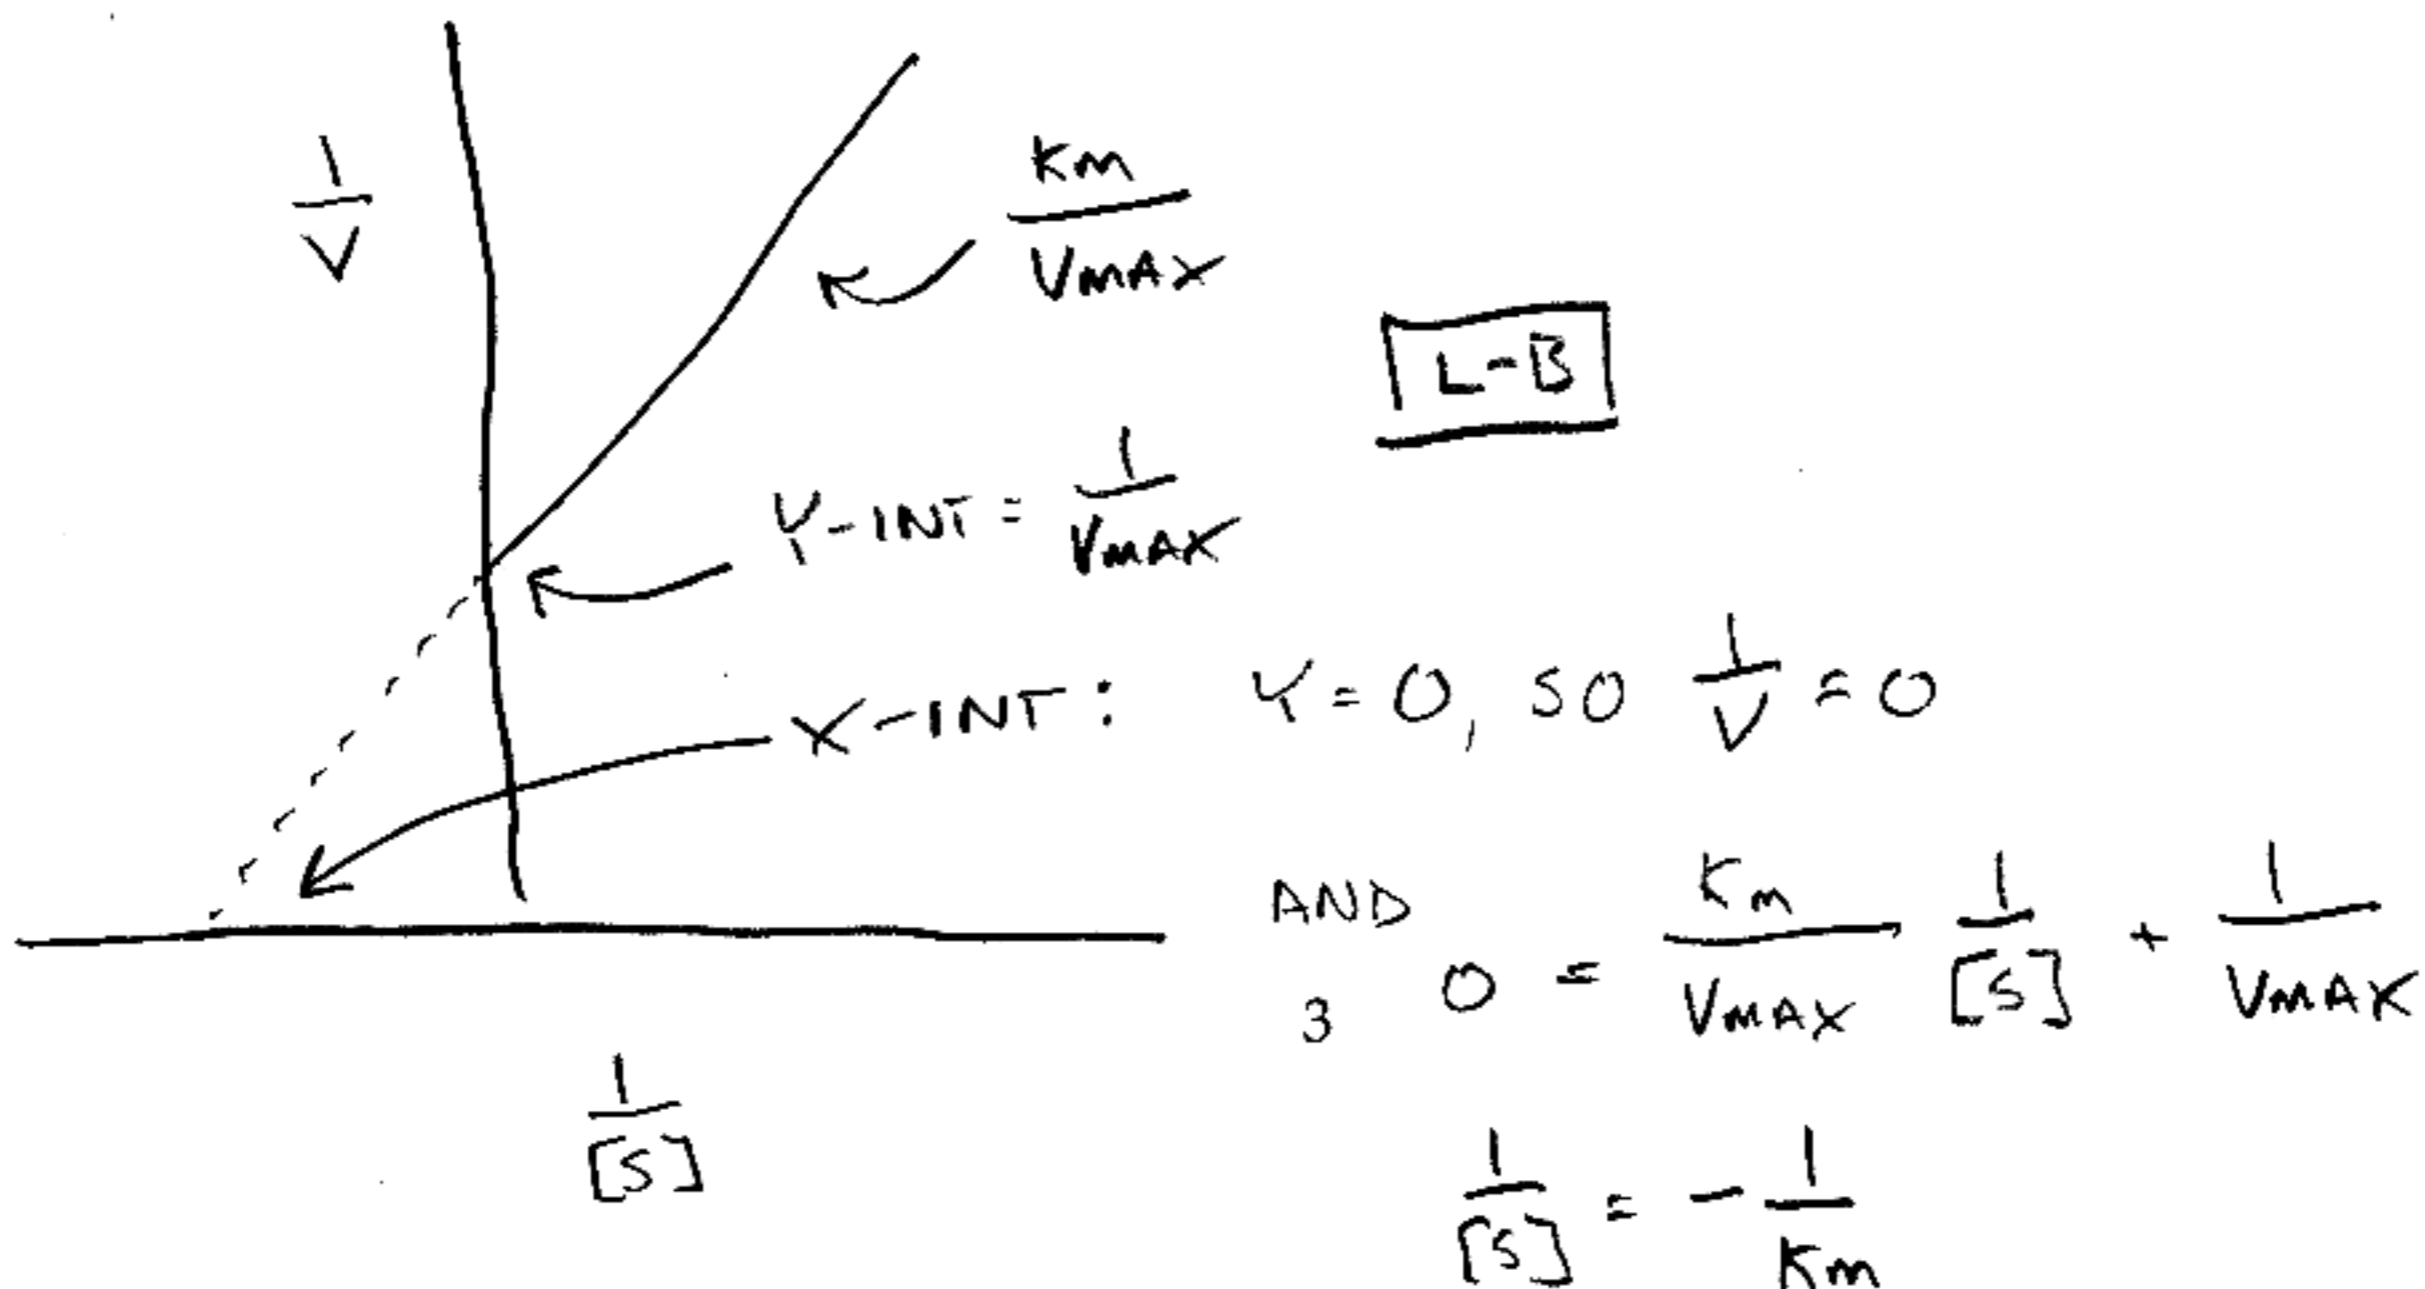 1/V
Km/VMAX
L-B
Y-INT = 1/VMAX
X-INT: Y = 0, SO 1/V = 0
AND
0 = Km/VMAX 1/[S] + 1/VMAX
3
1/[S]
1/[S] = - 1/Km